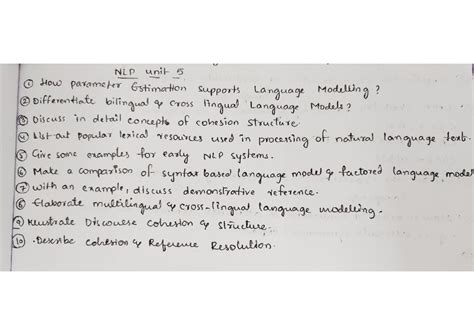 NLP unit 5
① How parameter Estimation supports Language Modelling?
② Differentiate bilingual & cross lingual Language Models?
③ Discuss in detail concepts of cohesion structure
④ List out popular lexical resources used in processing of natural language text.
⑤ Give some examples for early NLP systems.
⑥ Make a comparison of syntax based language model & factored language model
⑦ With an example, discuss demonstrative reference.
⑧ Elaborate multilingual & cross-lingual language modeling.
⑨ Illustrate Discourse cohesion & structure.
⑩ Describe cohesion & Reference Resolution.